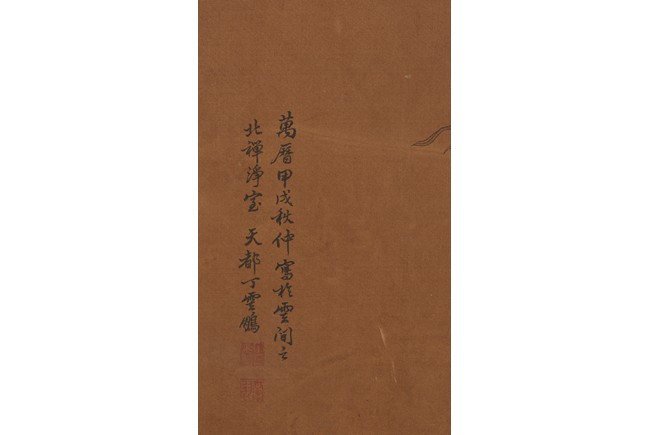 萬曆甲戌秋仲寓於雲間之
北禪淨室 天都丁雲鵬